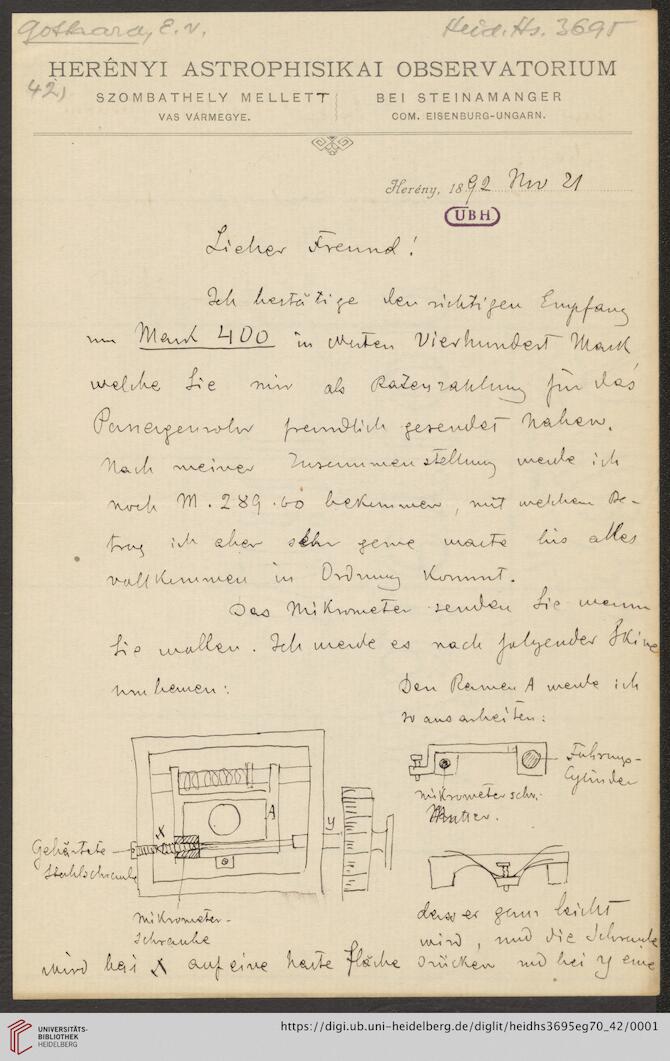 Gothard, E. v.
Heid. Hs. 3695
42)
HERÉNYI ASTROPHISIKAI OBSERVATORIUM
SZOMBATHELY MELLETT
BEI STEINAMANGER
VAS VÁRMEGYE.
COM. EISENBURG-UNGARN.
Herény, 1892 Nov 21
UBH
Lieber Freund!
Ich bestätige den richtigen Empfang
von Mark 400 in Worten Vierhundert Mark
welche Sie mir als Ratenzahlung für das
Passagenrohr freundlich gesendet haben.
Nach meiner Zusammenstellung werde ich
noch M. 289.60 bekommen, mit welchem Be-
trag ich aber sehr gerne warte bis alles
vollkommen in Ordnung kommt.
Das Mikrometer senden Sie wann
Sie wollen. Ich werde es nach folgender Skize
umbauen:
Den Ramen A werde ich
so ausarbeiten:
Führungs-
Cylinder
Mikrometerschr.
Mutter.
A
x
y
Gehärtete
Stahlschraube
Mikrometer-
schraube
dass er ganz leicht
wird, und die Schraube
wird bei x auf eine harte Fläche drücken und bei y eine
UNIVERSITÄTS-
BIBLIOTHEK
HEIDELBERG
https://digi.ub.uni-heidelberg.de/diglit/heidhs3695eg70_42/0001